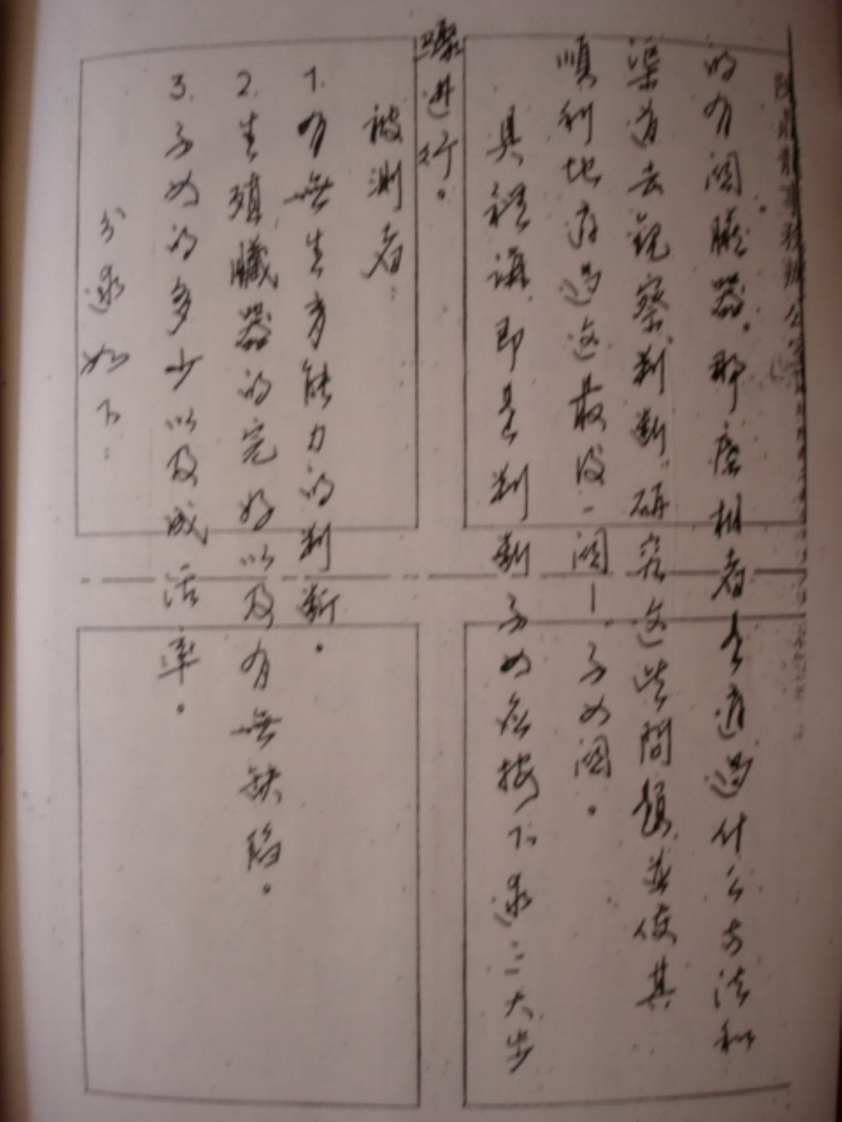 的有関臟器。那麼相者会通過什么方法和
渠道去観察判断研究这些問題並使其
順利地通過这最後一関—子女関。
具程講,即是判断子女应按下述三大步
骤进行。
被測者:
1. 有無生育能力的判断。
2. 生殖臟器的完好以及有無缺陷。
3. 子女的多少以及成活率。
分述如下: